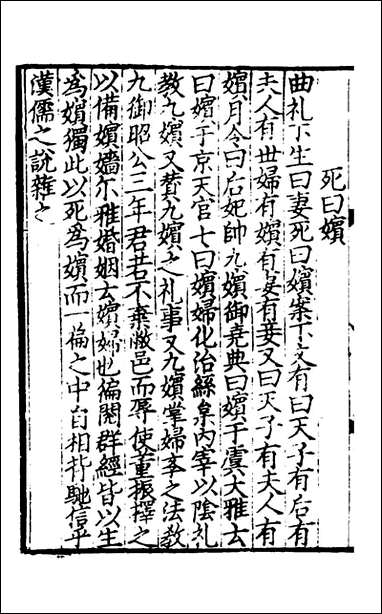 死曰嬪
曲礼下生曰妻死曰嬪案下文有曰天子有后有
夫人有世婦有嬪有妻有妾又曰天子有夫人有
嬪月令曰后妃帥九嬪御尭典曰嬪于虞大雅云
曰嬪于京天官七曰嬪婦化治絲枲内宰以陰礼
教九嬪又賛九嬪之礼事又九嬪掌婦李之法教
九御昭公三年君若不棄敝邑而辱使董振擇之
以備嬪嬙尓雅婚姻云嬪婦也徧閱群經皆以生
為嬪獨此以死為嬪而一篇之中自相背馳信乎
漢儒之說雜之